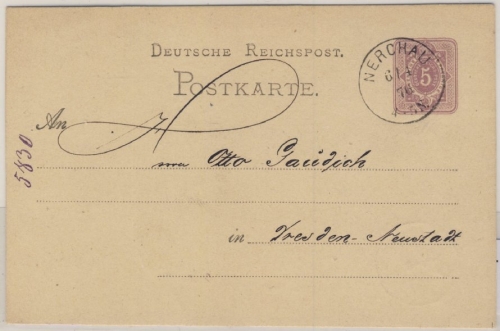 DEUTSCHE REICHSPOST.
POSTKARTE.
NERCHAU
5
An H
Otto Gaudich
in Dresden-Neustadt
5830